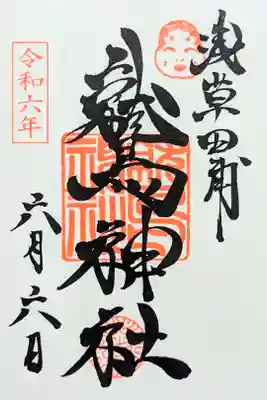 浅草田甫
鷲神社
令和六年
六月六日